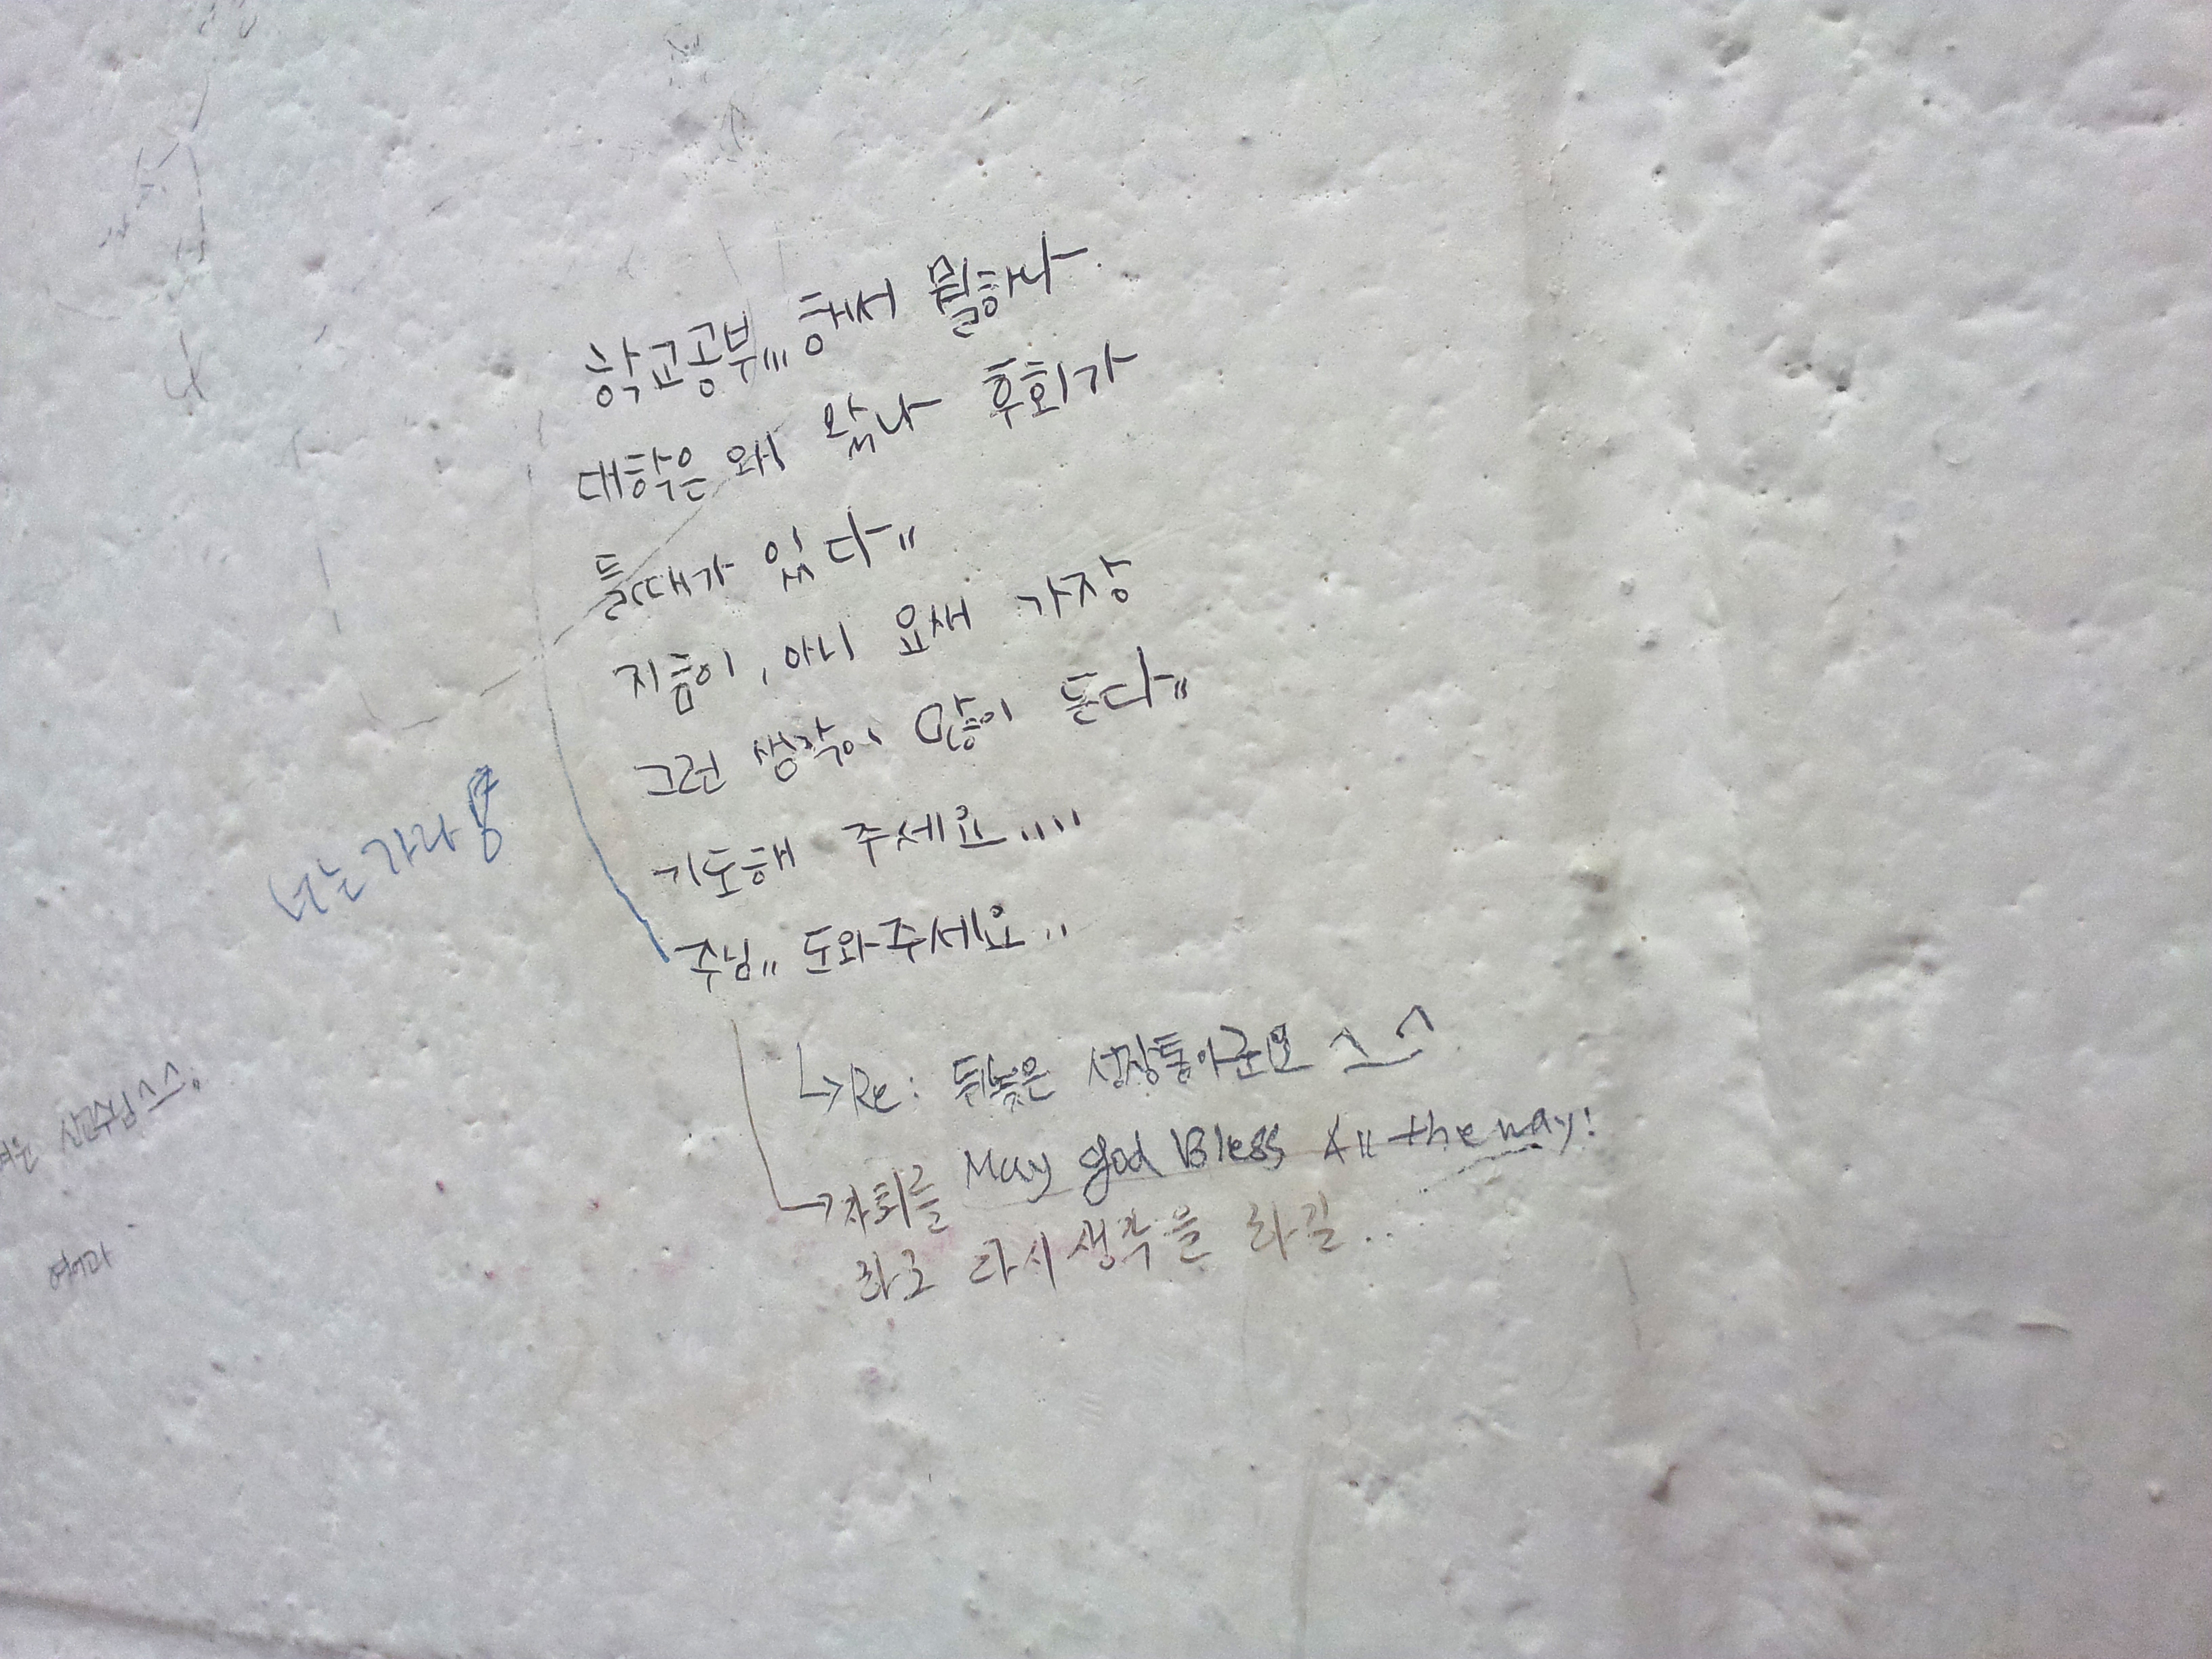 학교공부,,, 해서 뭘하나
대학은 왜 왔나 후회가
들때가 있다,,
지금이, 아니 요새 가장
그런 생각이 많이 든다,,
기도해 주세요,,,,
주님,, 도와주세요..
↳Re: 뒤늦은 성장통이군요 ^_^
May god Bless All the way!
↳자퇴를
하고 다시 생각을 하길..
너는 가라